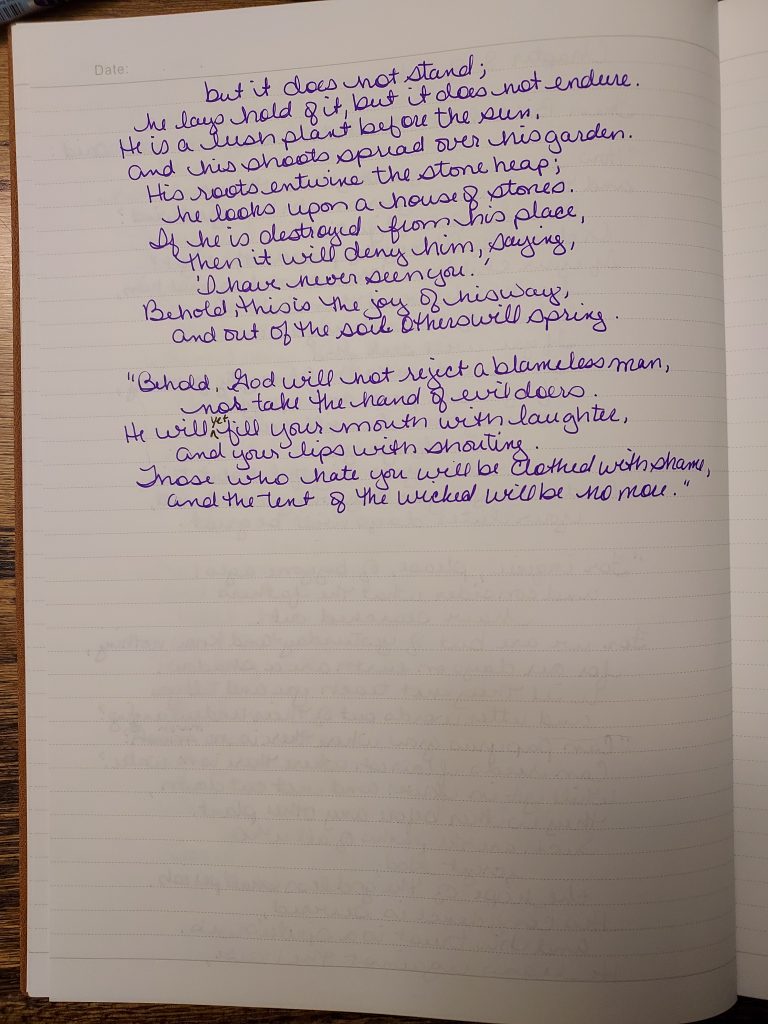 Date:
but it does not stand;
he lays hold of it, but it does not endure.
He is a lush plant before the sun,
and his shoots spread over his garden.
His roots entwine the stone heap;
he looks upon a house of stones.
If he is destroyed from his place,
then it will deny him, saying,
'I have never seen you.'
Behold, this is the joy of his way,
and out of the soil others will spring.
"Behold, God will not reject a blameless man,
nor take the hand of evildoers.
He will yet fill your mouth with laughter,
and your lips with shouting.
Those who hate you will be clothed with shame,
and the tent of the wicked will be no more."